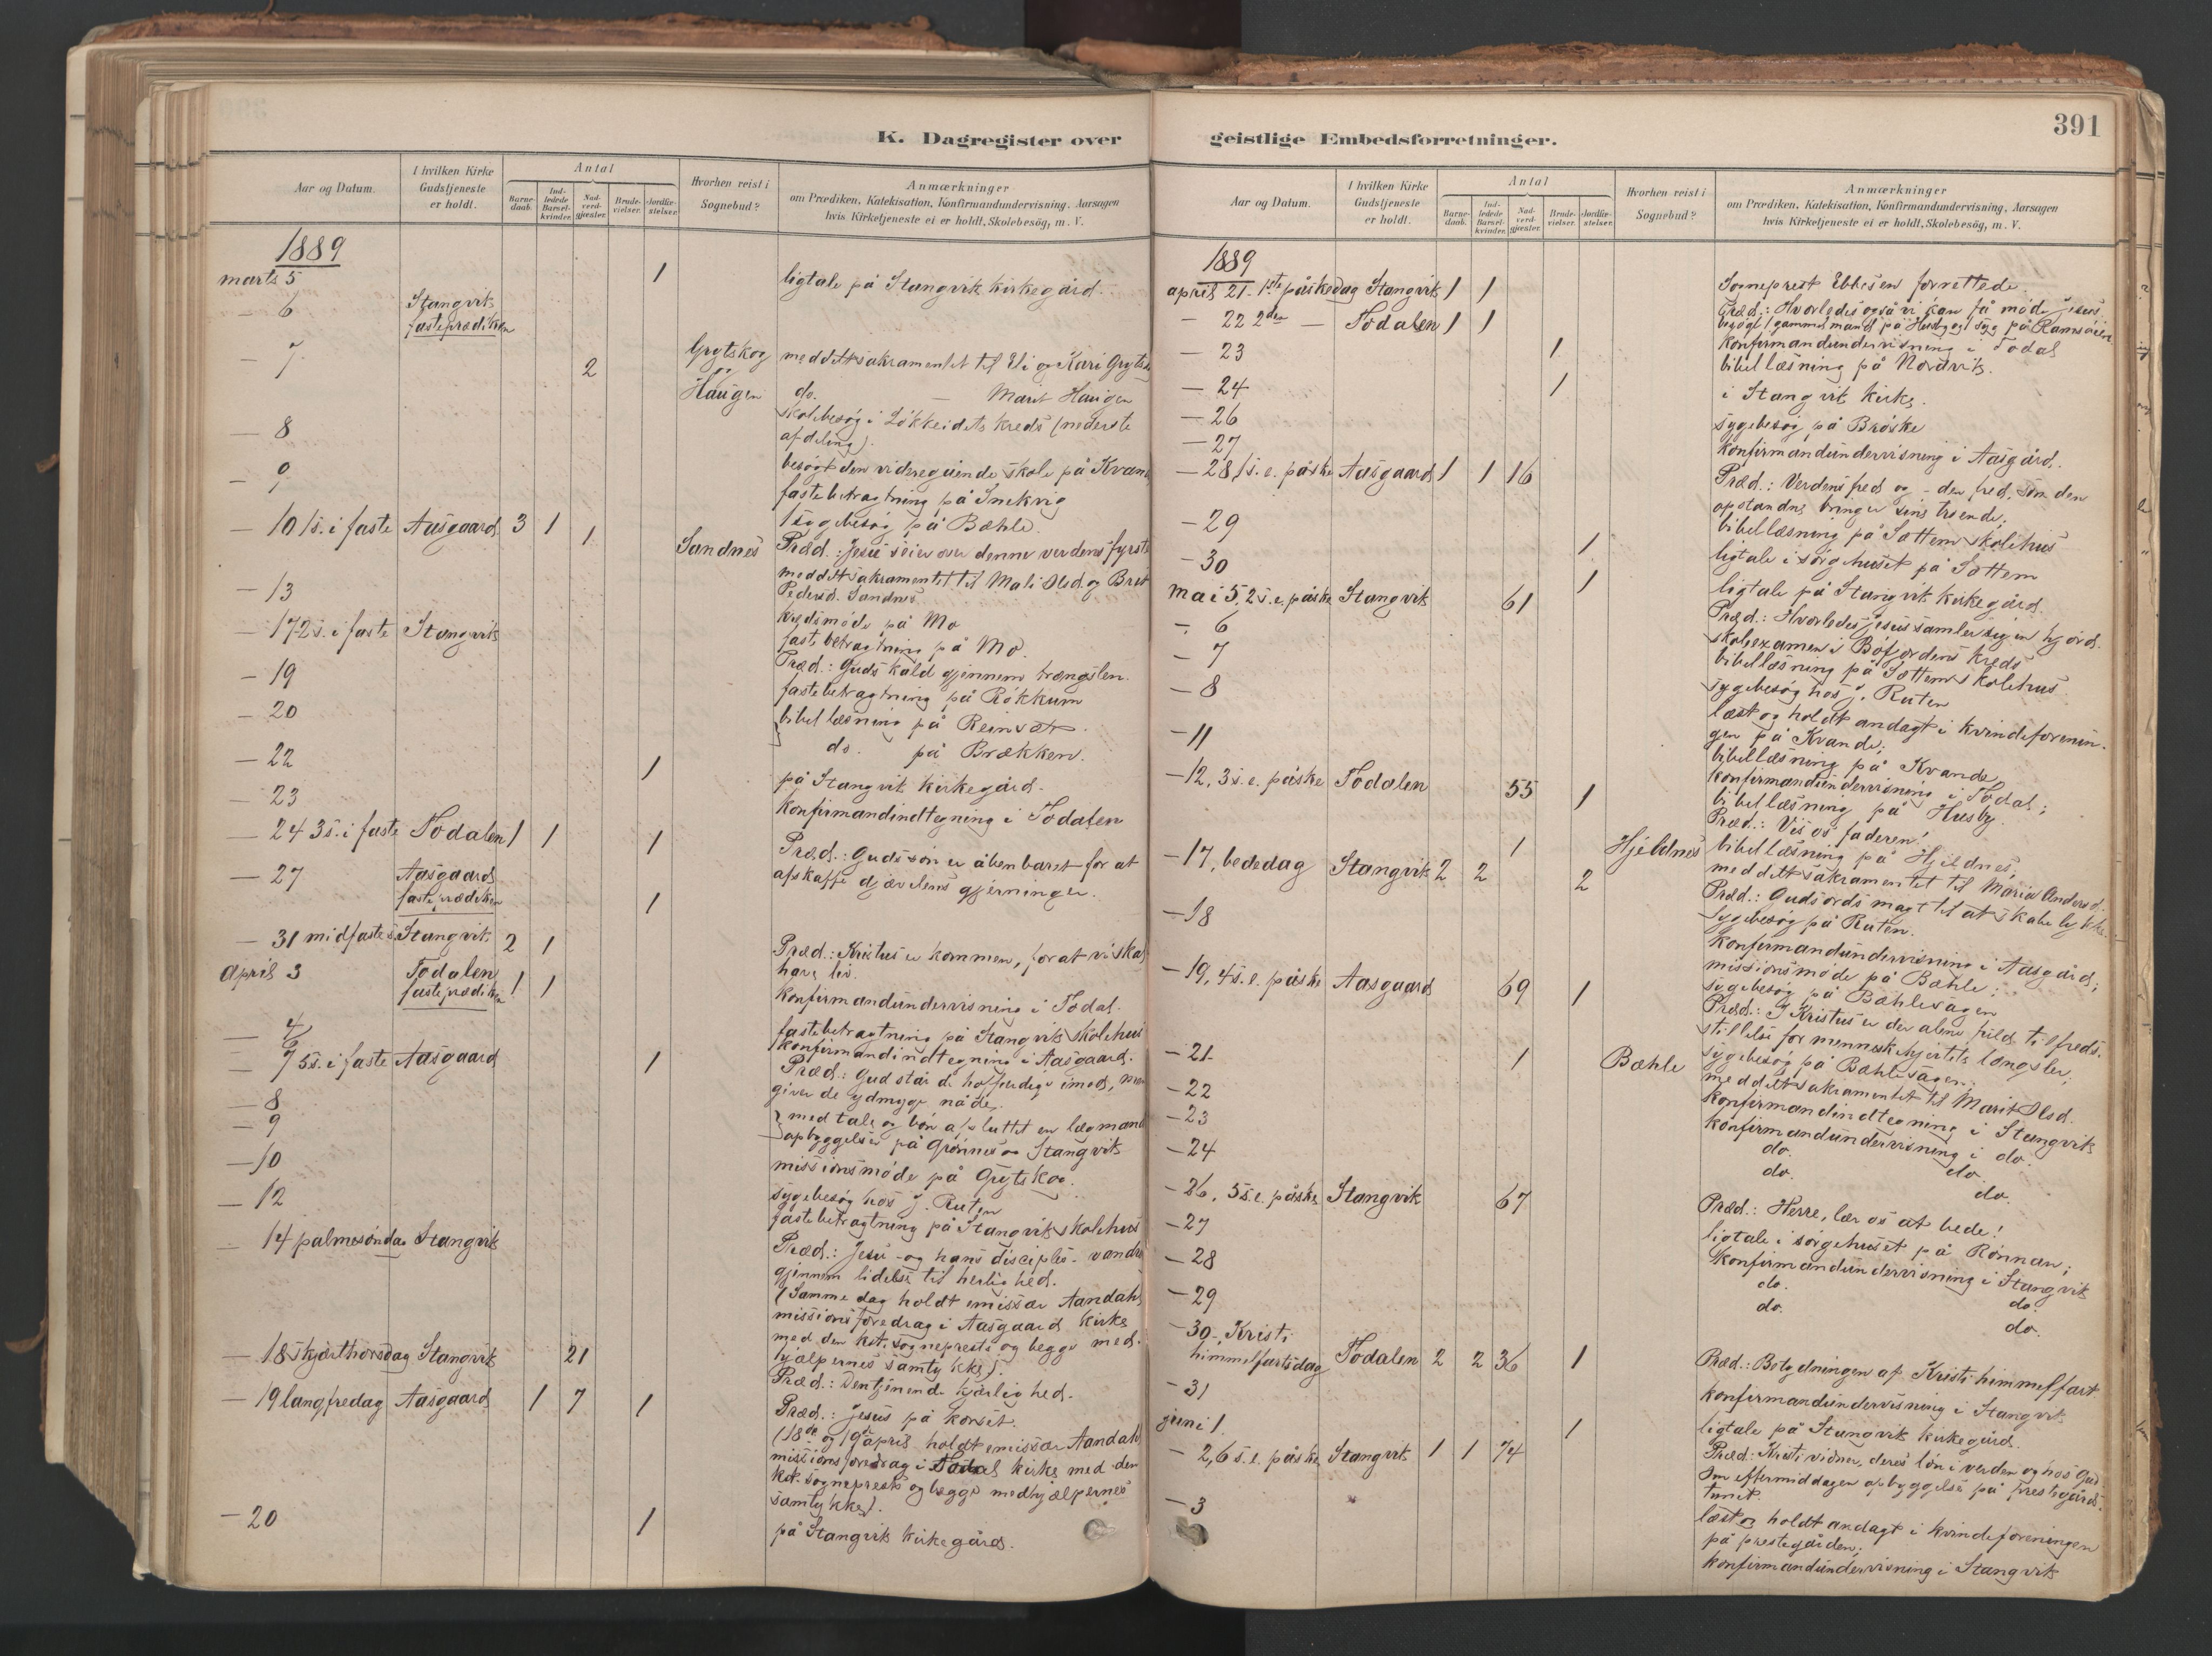 K. Dagregister over
Aar og Datum.
I hvilken Kirke Gudstjeneste er holdt.
Antal
Barne-daab.
Ind-ledede Barsel-kvinder.
Nad-verd-gjester.
Brude-vielser.
Jordfæ-stelser.
Hvorhen reist i Sognebud?
Anmærkninger
om Prædiken, Katekisation, Konfirmandundervisning, Aarsagen
hvis Kirketjeneste ei er holdt, Skolebesög, m. V.
1889
marts 5 1 ligtale på Stangvik kirkegård.
— 6 Stangvik fasteprædiken
— 7 2 Grytskog og Haugen meddelt sakramentet til Eli og Kari
do. — Marit Haugen
— 8 skolebesøg i Løkkeidets kreds (nederste
afdeling).
— 9 besøgt den videregående skole på Kvan
fastebetragtning på
1 sygebesøg på Bæhle.
— 10 1 s. i faste Aasgaard 3 1 1 Sandnes Præd.: Jesu seier over denne verdens fyrste
meddelt sakramentet til Mali Olsd. og Brit
Pedersd. Sandnes
— 13 kredsmøde på Mo
fastebetragtning på Mo.
— 17 2 s. i faste Stangvik Præd.: Guds kald gjennem trængslen.
— 19 fastebetragtning på Røkkum
— 20 bibellæsning på Reinvat
do. på Brækken.
— 22 1 på Stangvik kirkegård.
— 23 konfirmandindtegning i Todalen
— 24 3 s. i faste Todalen 1 1 1 Præd.: Guds søn er åbenbaret for at
afskaffe djævelens gjerninger.
— 27 Aasgaard fasteprædiken 1
— 31 midfastes. Stangvik 2 1 Præd.: Kristus er kommen, for at vi skal
have liv.
april 3 Todalen fasteprædiken 1 1 konfirmandundervisning i Todal.
— 4 fastebetragtning på Stangvik skolehus
— 6 konfirmandindtegning i Aasgaard.
— 7 5 s. i faste Aasgaard 1 Præd.: Gud står de hoffærdige imod, men
giver de ydmyge nåde.
— 8
— 9 med tale og bøn afsluttet en lægmand
opbyggelse på Grønnes og Stangvik
— 10 missionsmøde på Grytskog.
— 12 sygebesøg hos J. Ruten
fastebetragtning på Stangvik skolehus
— 14 palmesøndag Stangvik Præd.: Jesu - og hans disciples - vandre
gjennem lidelse til herlighed.
(Samme dag holdt emissær Aandahl
missionsforedrag i Aasgaard kirke
med den kst. sogneprests og begge med-
hjælpernes samtykke).
— 18 skjærthorsdag Stangvik 21 Præd.: Den tjenende kjærlighed.
— 19 langfredag Aasgaard 1 7 1 Præd.: Jesus på korset.
(18de og 19de april holdt emissær Aandahl
missionsforedrag i Todal kirke med den
kst. sogneprests og begge medhjælpernes
samtykke).
— 20 1 på Stangvik kirkegård.
391
geistlige Embedsforretninger.
Aar og Datum.
I hvilken Kirke Gudstjeneste er holdt.
Antal
Barne-daab.
Ind-ledede Barsel-kvinder.
Nad-verd-gjester.
Brude-vielser.
Jordfæ-stelser.
Hvorhen reist i Sognebud?
Anmærkninger
om Prædiken, Katekisation, Konfirmandundervisning, Aarsagen
hvis Kirketjeneste ei er holdt, Skolebesög, m. V.
1889
april 21. 1ste påskedag Stangvik 1 1 Sogneprest Ebbesen forrettede.
— 22 2den — Todalen 1 1 Præd.: Hvorledes også vi kan få møde Jesus.
besøgt 1 gammel mand på Husby og 1 syg på
— 23 1 konfirmandundervisning i Todal
bibellæsning på Nordvik.
— 24 1 i Stangvik kirke.
— 26 sygebesøg på Brøske
— 27 konfirmandundervisning i Aasgård.
— 28 1 s. e. påske Aasgaard 1 1 16 Præd.: Verdens fred og - den fred, som den
opstandne bringer sine troende;
— 29 bibellæsning på Sættem skolehus
— 30 1 ligtale i sørgehuset på Sættem
1 ligtale på Stangvik kirkegård.
mai 5, 2 s. e. påske Stangvik 61 Præd.: Hvorledes Jesus samler sig en hjord.
— 6 skoleexamen i Bøfjordens kreds
— 7 bibellæsning på Sættem skolehus
— 8 sygebesøg hos J. Ruten
læst og holdt andagt i kvindeforenin-
gen på Kvande;
— 11 bibellæsning på Kvande
konfirmandundervisning i Todal;
bibellæsning på Husby
— 12, 3 s. e. påske Todalen 55 1 Præd.: Vis os faderen!
bibellæsning på Hjeldnes;
1 Hjeldnes meddelt sakramentet til Maria Andersd.
— 17, bededag Stangvik 2 2 2 Præd.: Gudsords magt til at skabe lykke.
sygebesøg på Ruten.
— 18 konfirmandundervisning i Aasgård;
missionsmøde på Bæhle;
sygebesøg på Bæhlesågen
— 19, 4 s. e. påske Aasgaard 69 1 Præd.: I Kristus er der alene fuld tilfreds-
stillelse for menneskehjertets længsler;
sygebesøg på Bæhlesågen;
— 21 1 Bæhle meddelt sakramentet til Marit Olsd.
— 22 konfirmandindtegning i Stangvik
— 23 konfirmandundervisning i do.
— 24 do. do.
do. do.
— 26, 5 s. e. påske Stangvik 67 Præd.: Herre, lær os at bede!
— 27 ligtale i sørgehuset på Rönnan;
— 28 konfirmandundervisning i Stangvik
— 29 do. do.
do. do.
— 30, Kristi himmelfartsdag Todalen 2 2 36 1 Præd.: Betydningen af Kristi himmelfart
— 31 konfirmandundervisning i Stangvik
juni 1. 1 ligtale på Stangvik kirkegård.
— 2, 6 s. e. påske Stangvik 1 1 74 Præd.: Kristi vidner, deres løn i verden og hos Gud
Om eftermiddagen opbyggelse på prestegårds-
tunet.
— 3 læst og holdt andagt i kvindeforeningen
på prestegården;
konfirmandundervisning i Stangvik